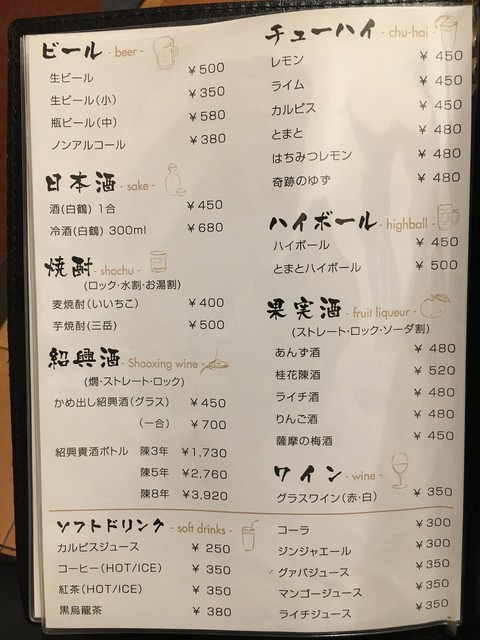 ビール - beer -
生ビール ¥500
生ビール(小) ¥350
瓶ビール(中) ¥580
ノンアルコール ¥380
日本酒 - sake -
酒(白鶴) 1合 ¥450
冷酒(白鶴) 300ml ¥680
焼酎 - shochu -
(ロック・水割・お湯割)
麦焼酎(いいちこ) ¥400
芋焼酎(三岳) ¥500
紹興酒 - Shaoxing wine -
(燗・ストレート・ロック)
かめ出し紹興酒(グラス) ¥450
(一合) ¥700
紹興貴酒ボトル 陳3年 ¥1,730
陳5年 ¥2,760
陳8年 ¥3,920
チューハイ - chu-hai -
レモン ¥450
ライム ¥450
カルピス ¥450
とまと ¥480
はちみつレモン ¥480
奇跡のゆず ¥480
ハイボール - highball -
ハイボール ¥450
とまとハイボール ¥500
果実酒 - fruit liqueur -
(ストレート・ロック・ソーダ割)
あんず酒 ¥480
桂花陳酒 ¥520
ライチ酒 ¥480
りんご酒 ¥480
薩摩の梅酒 ¥450
ワイン - wine -
グラスワイン(赤・白) ¥350
ソフトドリンク - soft drinks -
カルピスジュース ¥250
コーヒー(HOT/ICE) ¥350
紅茶(HOT/ICE) ¥350
黒烏龍茶 ¥380
コーラ ¥300
ジンジャエール ¥300
グァバジュース ¥350
マンゴージュース ¥350
ライチジュース ¥350